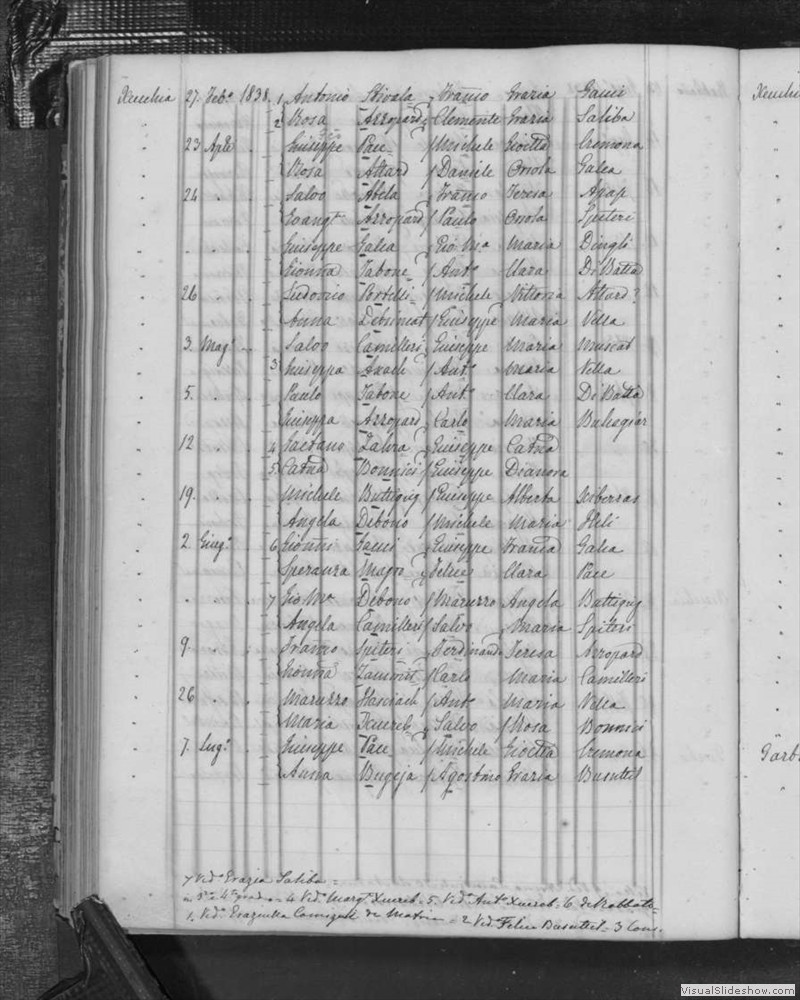 Xeuchia 27. Feb.o 1838. 1 Antonio Stivala Franso Grazia Gauci
2 Rosa Azzopardi Clemente Grazia Saliba
23 Aple Giuseppe Pace Michele Gioctta Cremona
Rosa Attard Daniele Orsola Galea
24 Salvo Abela Franso Teresa Agap
Evangta Azzopard Paulo Orsola Spiteri
Giuseppe Galea Gio Ma Maria Dingli
Gionna Tabone Anto Clara Di Batta
26 Ludovico Portelli Michele Vittoria Attard?
Anna Giuseppe Maria Vella
3. Mago Salvo Camilleri Giuseppe Maria Muscat
3 Giuseppa Axach Anto Maria Vella
5. Paulo Tabone Anto Clara Di Batta
Giuseppa Azzopard Carlo Maria Buhagiar
12 4 Gaetano Zahra Giuseppe Catna
5 Catna Bonnici Giuseppe Dianora
19. Michele Buttigieg Giuseppe Alberta Xiberras
Angela Debono Michele Maria Heli
2. Giugo 6 Gionni Gauci Giuseppe Franca Galea
Speranza Magro Felice Clara Pace
7 Gio Ma Debono Maruzzo Angela Buttigieg
Angela Camilleri Salvo Maria Spiteri
9. Franso Spiteri Ferdinando Teresa Azzopard
Gionna Zammit Carlo Maria Camilleri
26 Maruzzo Haxiach Anto Maria Vella
Maria Xuereb Salvo Rosa Bonnici
7. Lugo Giuseppe Pace Michele Gioctta Cremona
Anna Bugeja Agostino Grazia Busuttil
7 Vida Grazia Saliba
in 3o e 4o grado 4 Vida Marga Xuereb. 5. Vido Anta Xuereb. 6 de Rabbato
1. Vido Graziulla de Matri 2 Vida Felice Busuttil. 3 Cons.
Xeuchia
Garbo
VisualSlideshow.com